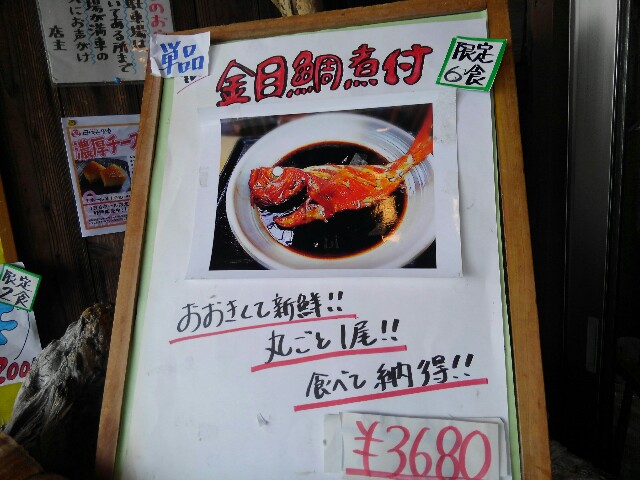 単品
金目鯛煮付
限定
6食
おおきくて新鮮!!
丸ごと1尾!!
食べて納得!!
¥3680
駐車場は
場が満車の
にお声がけ
店主
濃厚チー
限定
2食